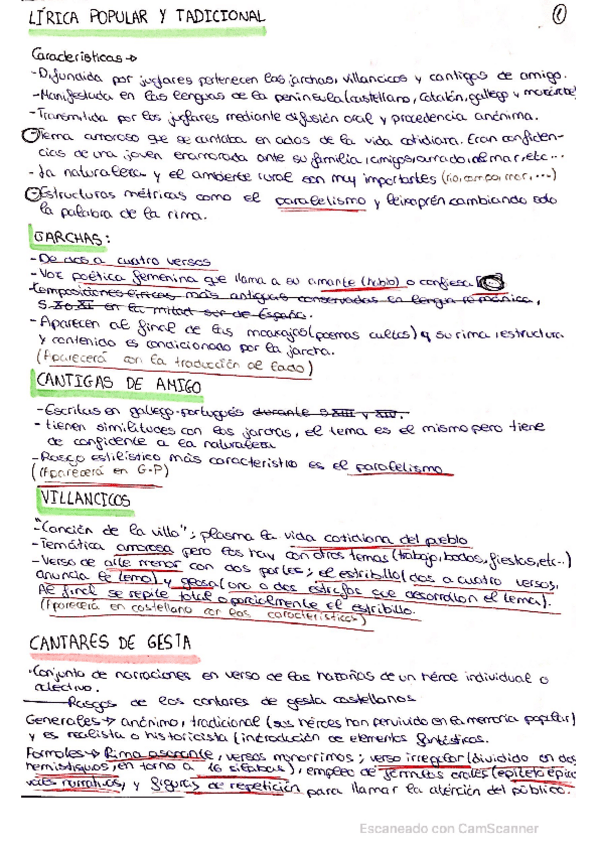 LÍRICA POPULAR Y TADICIONAL
1
Características →
- Difundida por juglares pertenecen las jarchas, villancicos y cantigas de amigo.
- Manifestada en las lenguas de la península (castellano, Catalán, gallego y mozárabe)
- Transmitida por los juglares mediante difusión oral y procedencia anónima.
- Tema amoroso que se cantaba en actos de la vida cotidiara. Eran confiden-
cias de una joven enamorada ante su familia, amigos, amado, el mar, etc...
- La naturaleza y el ambiente rural son muy importantes (río, mar, ...)
- Estructuras métricas como el paralelismo y leixaprén cambiando solo
la palabra de la rima.
GARCHAS:
- De dos a cuatro versos
- Voz poética femenina que llama a su amante (habib) o confiesa
- Composiciones líricas más antiguas conservadas en lengua románica,
S. XI en la mitad sur de España.
- Aparecen al final de las moaxajas (poemas cultos) y su rima, estructura
y contenido es condicionado por la jarcha.
(Aparecerá con la traducción al lado)
CANTIGAS DE AMIGO
- Escritas en gallego-portugués durante S. XIII y XIV.
- tienen similitudes con las jarchas, el tema es el mismo pero tiene
de confidente a la naturaleza
- Rasgo estilístico más característico es el paralelismo
(Aparecerá en G-P)
VILLANCICOS
- "Canción de la villa"; plasma la vida cotidiana del pueblo
- Temática amorosa pero las hay con otros temas (trabajo, bodas, fiestas, etc...)
- Verso de arte menor con dos partes; el estribillo (dos a cuatro versos,
anuncia el tema) y glosa (una o dos estrofas que desarrollan el tema).
Al final se repite total o parcialmente el estribillo.
(Aparecerá en castellano con las características)
CANTARES DE GESTA
- Conjunto de narraciones en verso de las hazañas de un héroe individual o
colectivo.
Rasgos de los cantares de gesta castellanos
Generales → anónimo, tradicional (sus héroes han pervivido en la memoria popular)
y es realista o historicista (introducción de elementos fantásticos.
Formales → Rima asonante, versos monorrimos; verso irregular (dividido en dos
hemistiquios, en torno a 16 sílabas), empleo de fórmulas orales (epíteto épico
y figuras de repetición para llamar la atención del público.
Escaneado con CamScanner